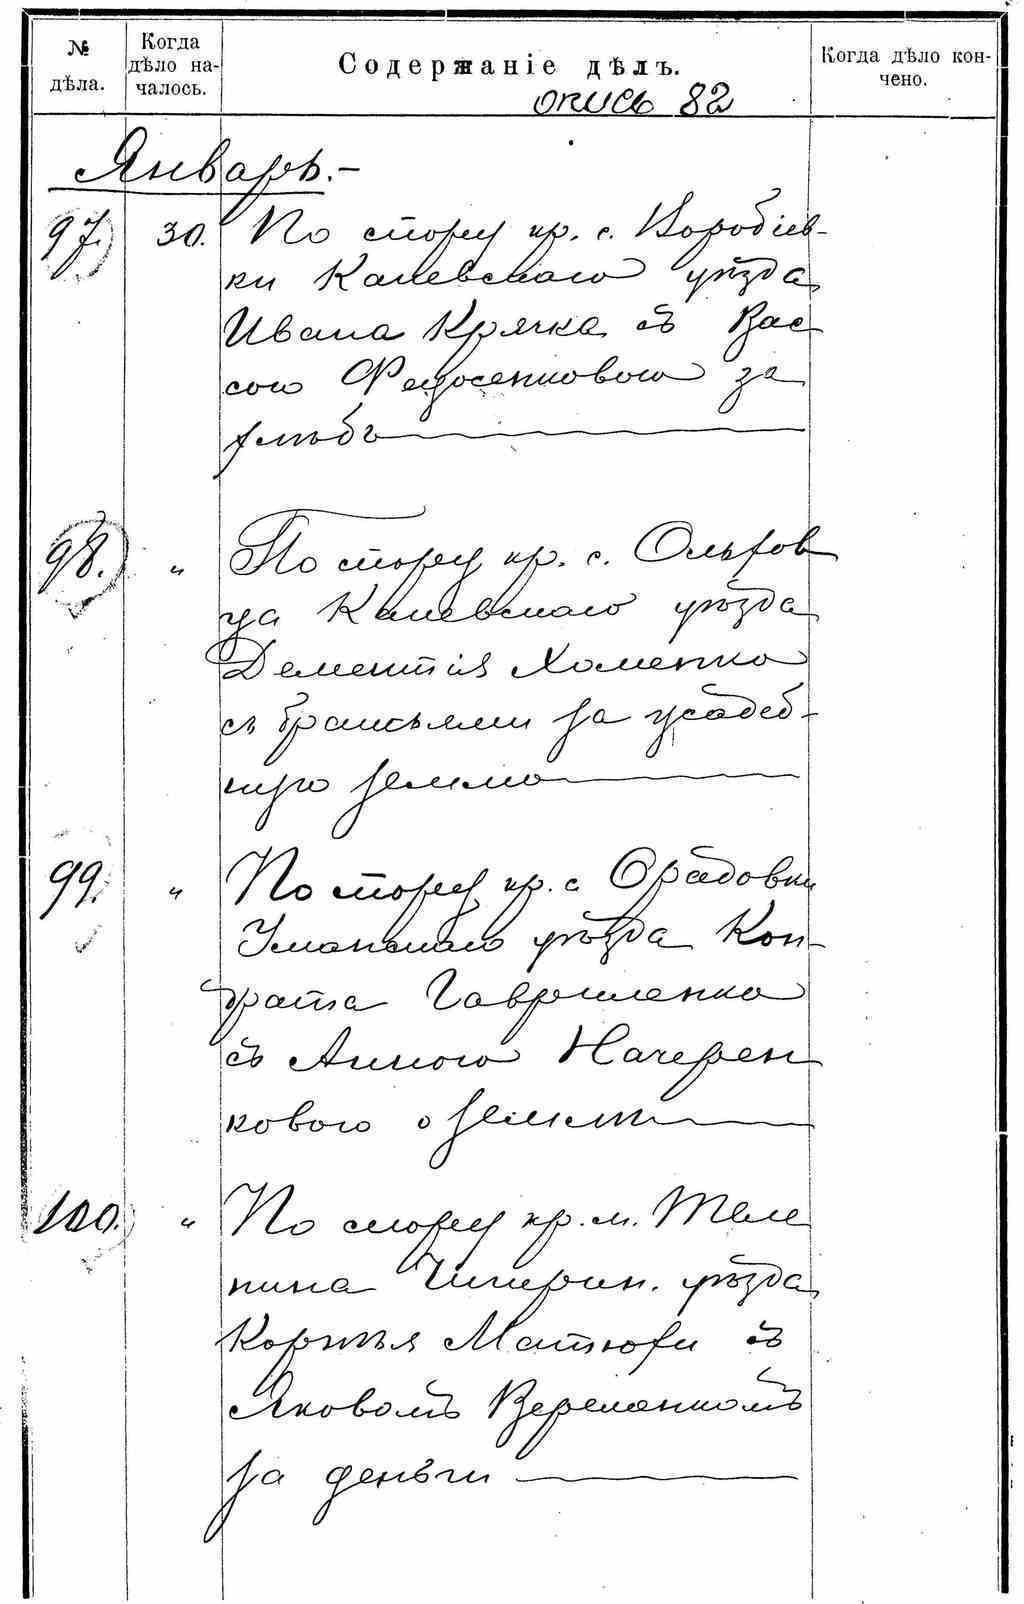 № дѣла.
Когда дѣло на-
чалось.
Содержаніе дѣлъ.
Когда дѣло кон-
чено.
опись 82
Январь.-
97. 30. По спору кр. с. Воробіев-
ки Каневскаго уѣзда
Ивана Крячка съ Вас
сою Федосенковою за
хлѣбъ
98. " По спору кр. с. Ольхов
ца Каневскаго уѣзда
Дементія Хоменка
съ братьями за усадеб-
ную землю
99. " По спору кр. с Орадовки
Уманскаго уѣзда Кон-
драта Гавриленка
съ Анною Начерен
ковою о землѣ
100. " По спору кр. м. Теле
пина Чигирин. уѣзда
Корнѣя Матюхи съ
Яковомъ Веременкомъ
за деньги